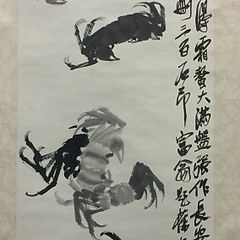 得霜螯大滿盤強作長安
三百石印富翁題舊